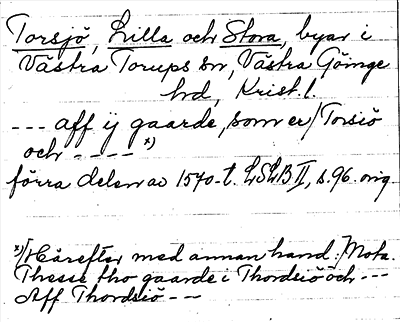 Torsjö, Lilla och Stora, byar i
Västra Torups sn, Västra Göinge
hd, Krist. l.
--- aff ij gaarde, som er/Torsiö
och ---- x)
förra delen av 1570-t. LSLB II, s. 96. orig.
x)/Härefter med annan hand:/Mota.
Thesse tho gaarde i Thordsiö och ---
Aff Thordsiö ---